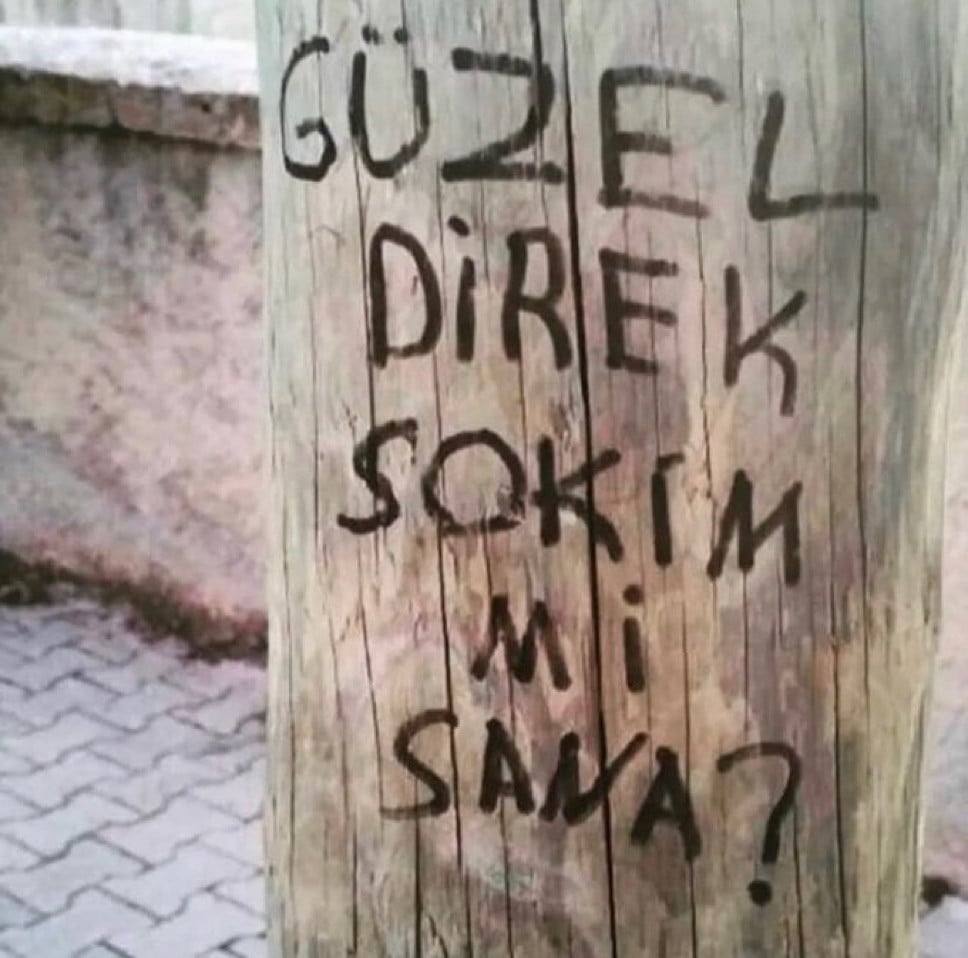 GÜZEL
DİREK
SOKIM
Mİ
SANA?